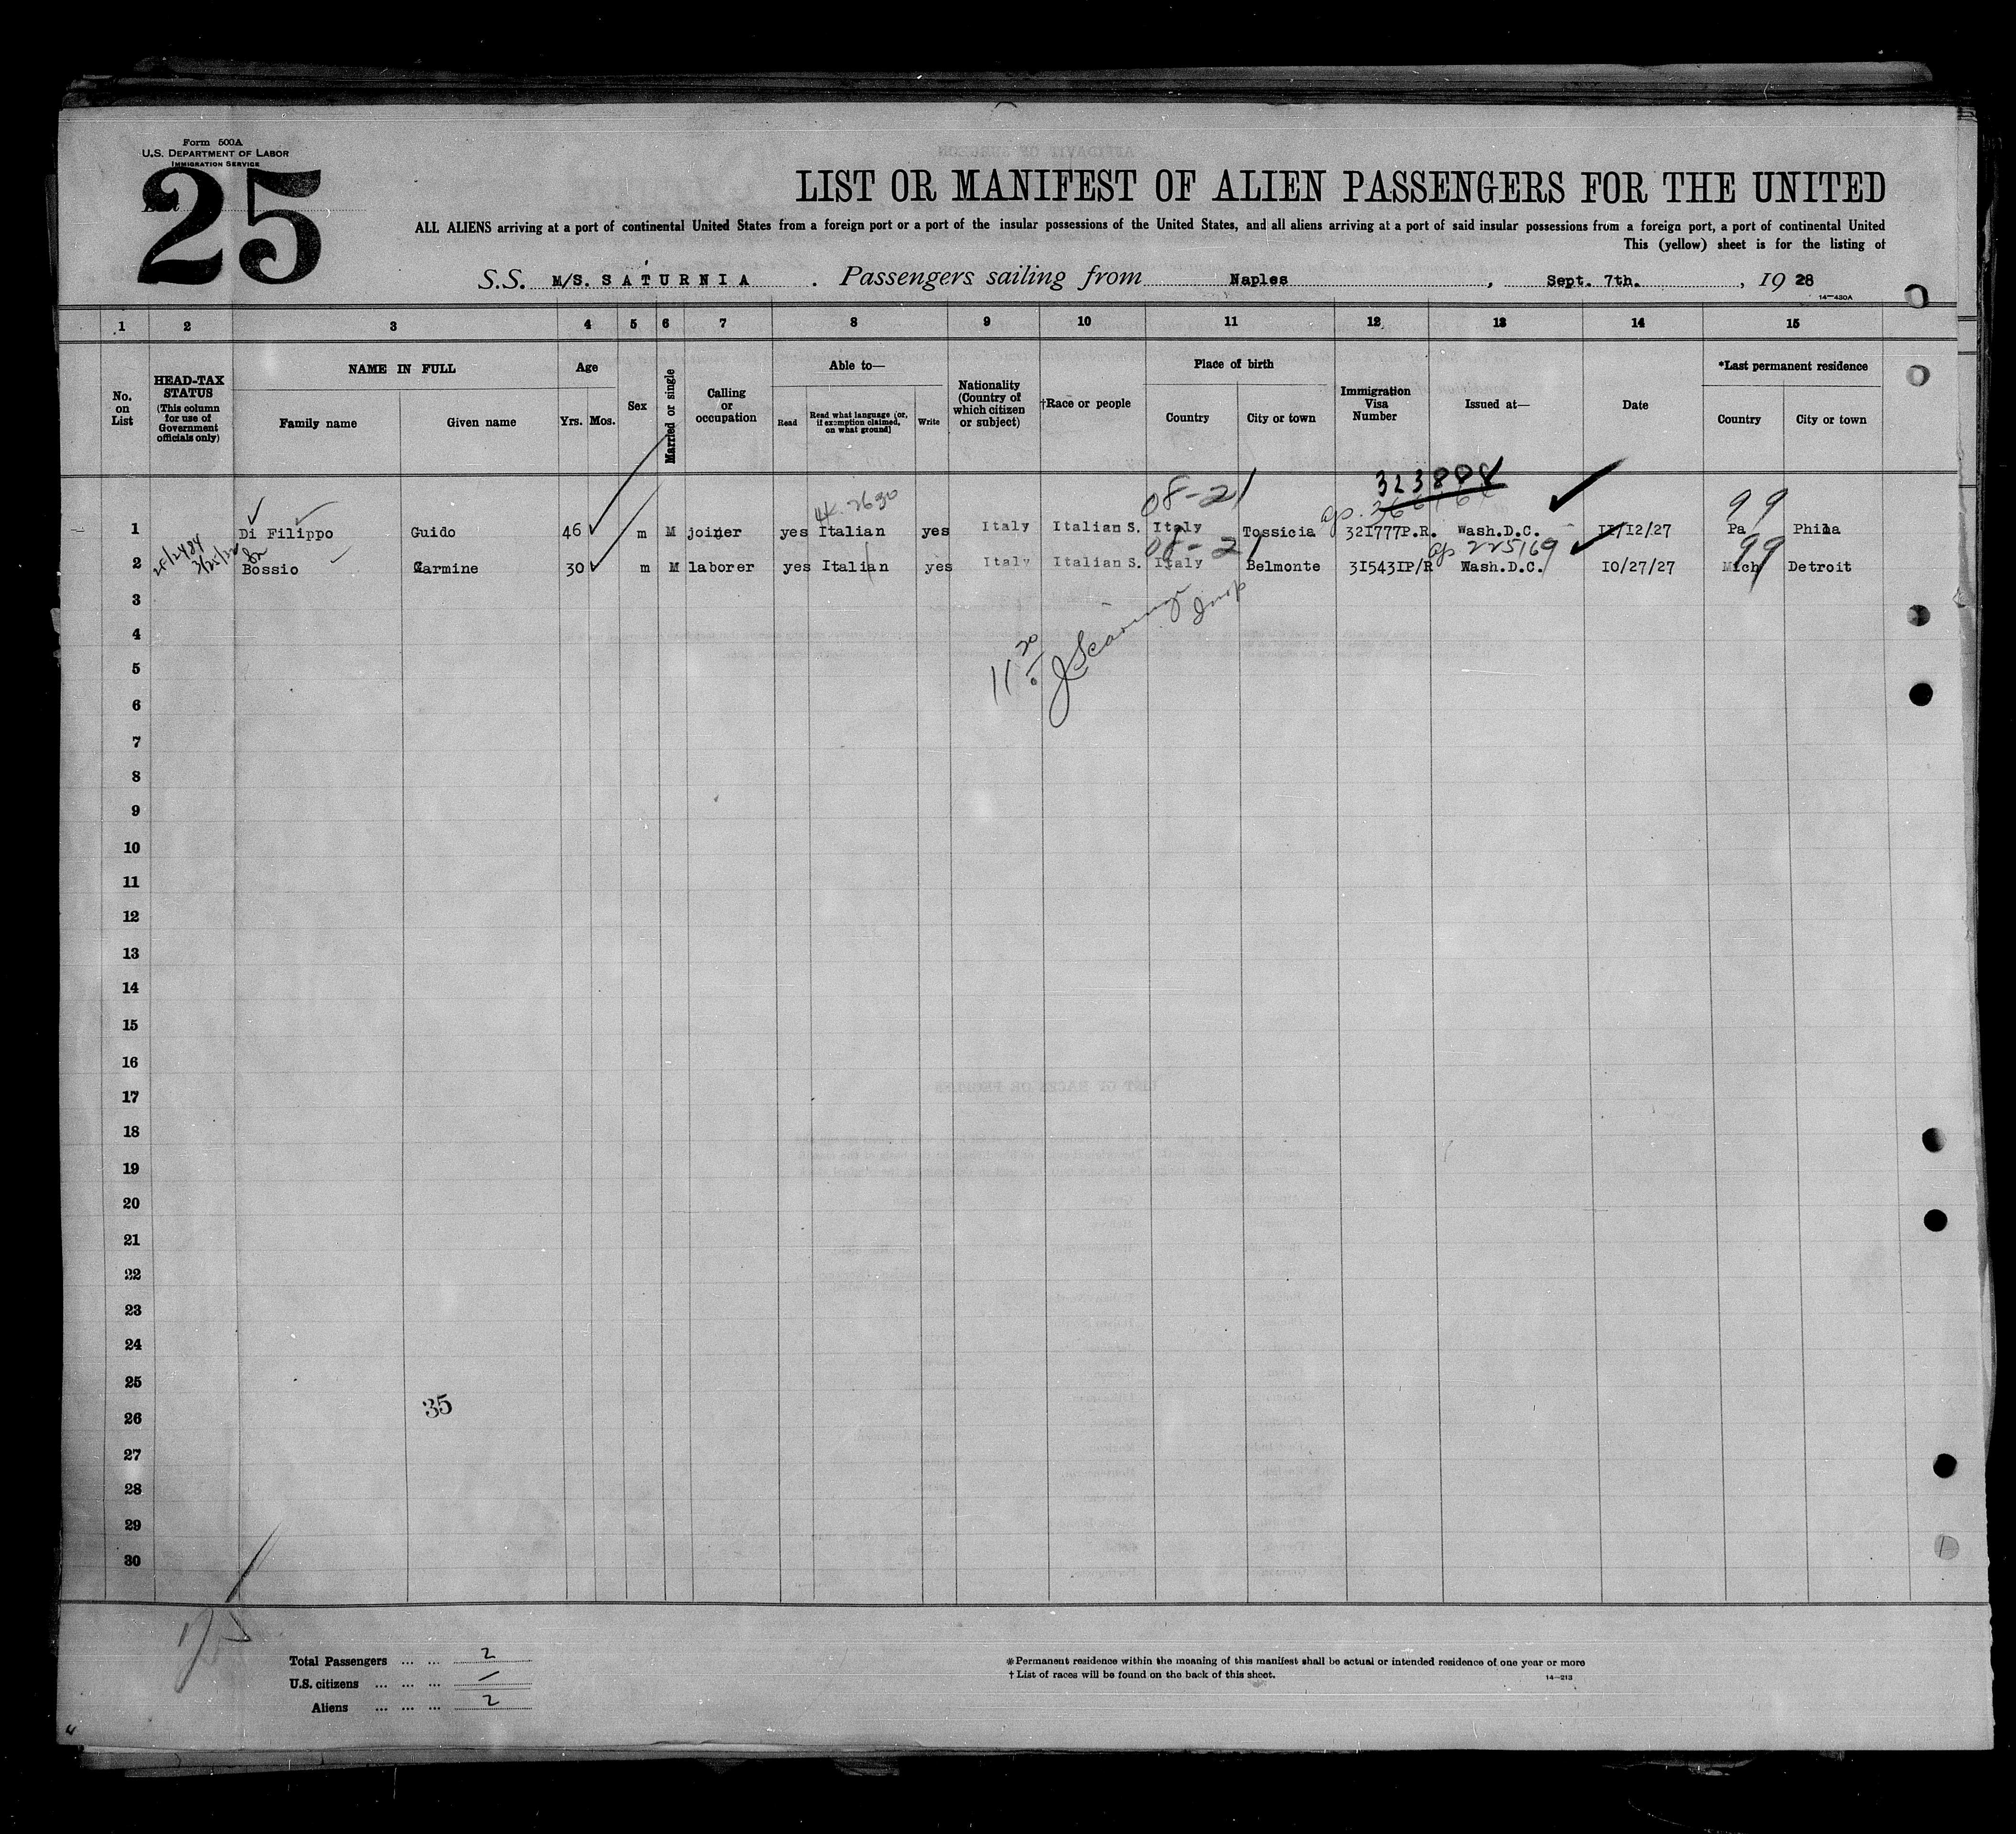 Form 500A
U.S. DEPARTMENT OF LABOR
IMMIGRATION SERVICE
25
LIST OR MANIFEST OF ALIEN PASSENGERS FOR THE UNITED
ALL ALIENS arriving at a port of continental United States from a foreign port or a port of the insular possessions of the United States, and all aliens arriving at a port of said insular possessions from a foreign port, a port of continental United
This (yellow) sheet is for the listing of
S.S. M/S. SATURNIA . Passengers sailing from Naples , Sept. 7th. , 19 28
14-430A
1 2 3 4 5 6 7 8 9 10 11 12 13 14 15
No. on List
HEAD-TAX STATUS (This column for use of Government officials only)
NAME IN FULL
Family name Given name
Age
Yrs. Mos.
Sex
Married or single
Calling or occupation
Able to—
Read Read what language [or, if exemption claimed, on what ground] Write
Nationality (Country of which citizen or subject)
†Race or people
Place of birth
Country City or town
Immigration Visa Number
Issued at—
Date
*Last permanent residence
Country City or town
08-21 99
1 Di Filippo Guido 46 m M joiner yes Italian yes Italy Italian S. Italy Tossicia 321777P.R. Wash.D.C. 11/12/27 Pa Phila
08-21 225169 99
2 Bossio Carmine 30 m M laborer yes Italian yes Italy Italian S. Italy Belmonte 315431P/R Wash.D.C. 10/27/27 Mich Detroit
3
4
5
6
7
8
9
10
11
12
13
14
15
16
17
18
19
20
21
22
23
24
25
35
26
27
28
29
30
Total Passengers ... ... 2
U.S. citizens ... ... ... —
Aliens ... ... ... 2
*Permanent residence within the meaning of this manifest shall be actual or intended residence of one year or more
†List of races will be found on the back of this sheet.
14-213